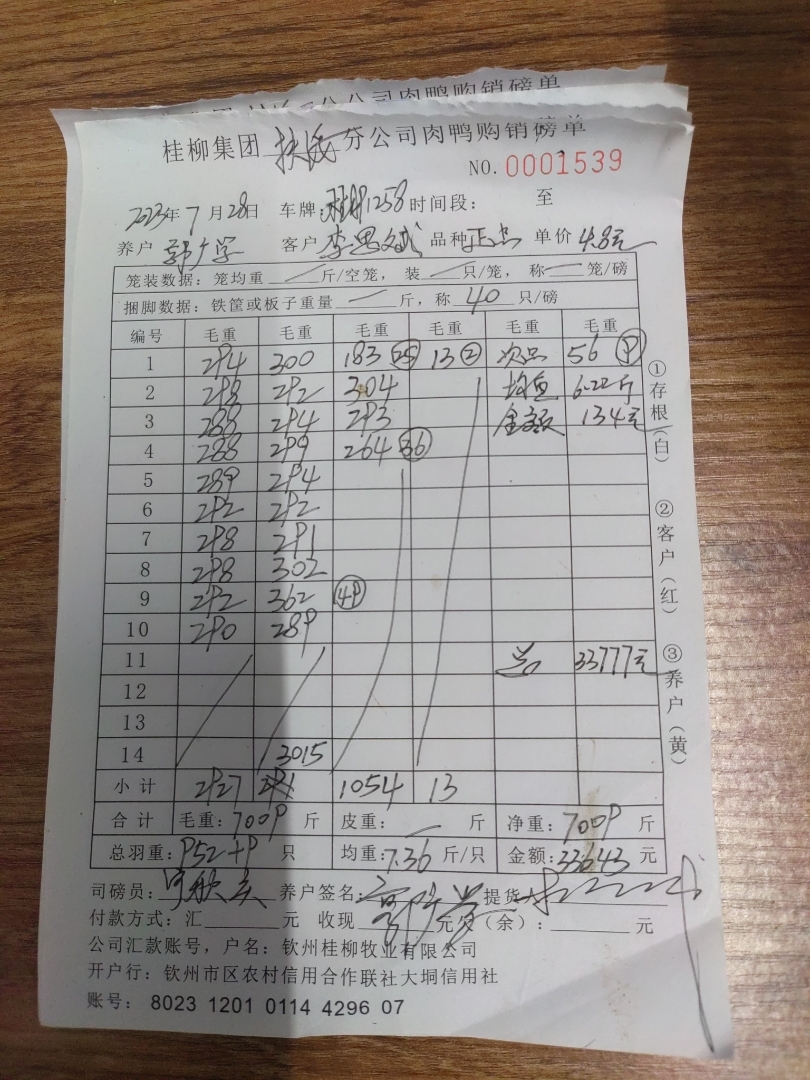 桂柳集团 分公司肉鸭购销磅单
NO. 0001539
2023年7月28日 车牌: 1258 时间段: 至
养户 客户 李思 品种 正品 单价 4.8元
笼装数据: 笼均重 斤/空笼, 装 只/笼, 称 笼/磅
捆脚数据: 铁筐或板子重量 斤, 称 40 只/磅
编号 毛重 毛重 毛重 毛重 毛重
1 294 300 183 25 13 2 次品 56 9
2 298 292 304 均重 6.22斤
3 288 294 293 金额 134元
4 288 299 264 36
5 289 294
6 292 292
7 298 291
8 298 302
9 292 362 49
10 290 289
11 总 33777元
12
13
14 3015
小计 2927 1054 13
合计 毛重: 7009 斤 皮重: 斤 净重: 7009 斤
总羽重: 952+9 只 均重: 7.36 斤/只 金额: 33643 元
司磅员: 养户签名: 提货人
付款方式: 汇 元 收现 元 (余): 元
公司汇款账号, 户名: 钦州桂柳牧业有限公司
开户行: 钦州市区农村信用合作联社大垌信用社
账号: 8023 1201 0114 4296 07
①存根(白)
②客户(红)
③养户(黄)